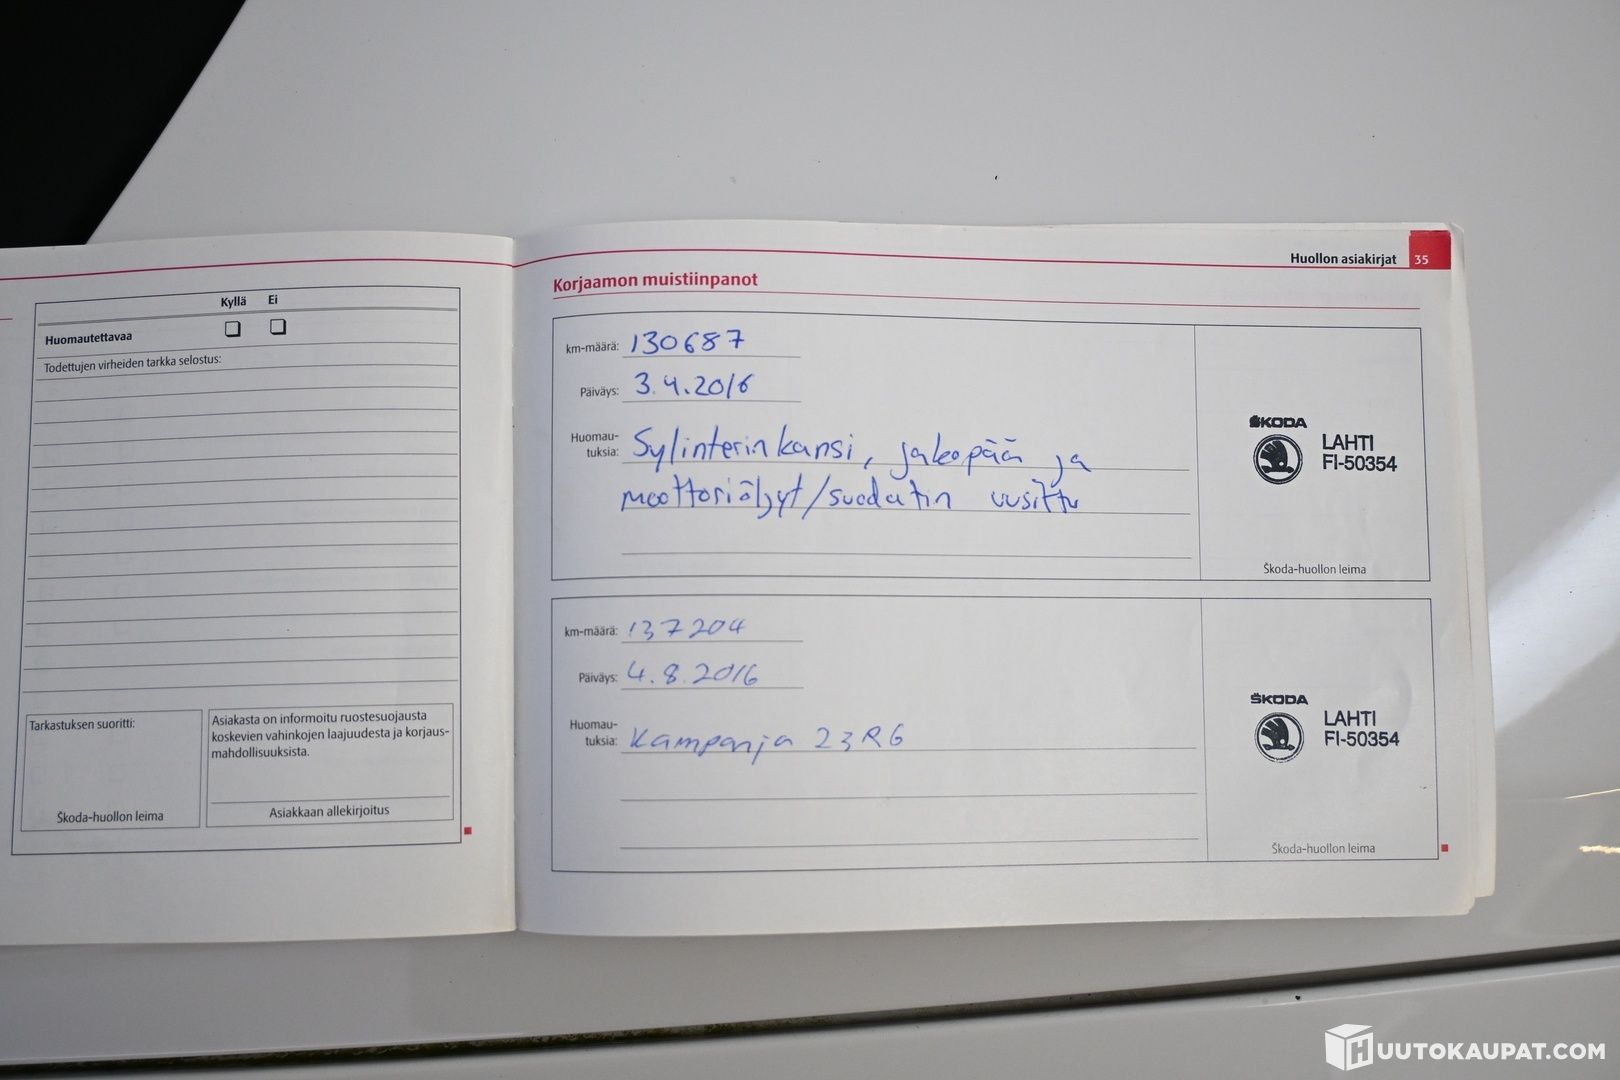 Kyllä Ei
Huomautettavaa
Todettujen virheiden tarkka selostus:
Tarkastuksen suoritti:
Škoda-huollon leima
Asiakasta on informoitu ruostesuojausta
koskevien vahinkojen laajuudesta ja korjaus-
mahdollisuuksista.
Asiakkaan allekirjoitus
Huollon asiakirjat 35
Korjaamon muistiinpanot
km-määrä: 130687
Päiväys: 3.4.2016
Huomau-
tuksia: Sylinterinkansi, jakopää ja
moottoriöljyt/suodatin uusittu
ŠKODA
LAHTI
FI-50354
Škoda-huollon leima
km-määrä: 137204
Päiväys: 4.8.2016
Huomau-
tuksia: Kampanja 23R6
ŠKODA
LAHTI
FI-50354
Škoda-huollon leima
HUUTOKAUPAT.COM